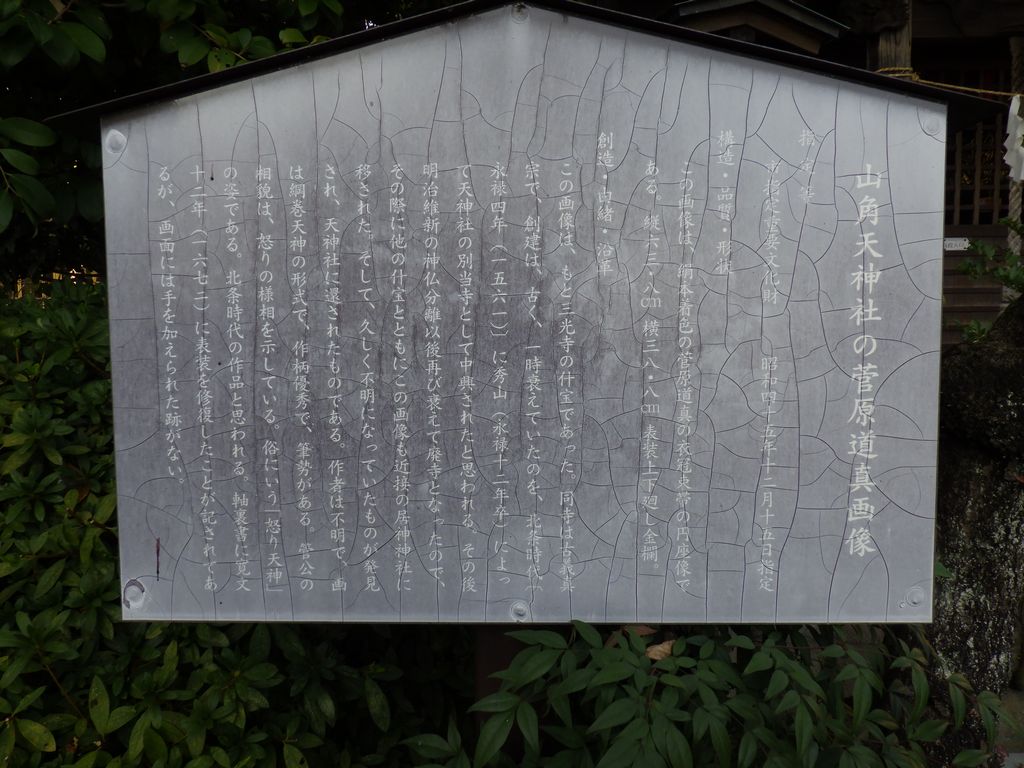 山角天神社の菅原道真画像
指定等
市指定重要文化財　昭和四十五年十二月十五日指定
構造・品質・形状
この画像は、絹本着色の菅原道真の衣冠束帯の円座像で
ある。縦六三・八㎝　横三八・八㎝　表装上下廻し金襴。
創造・由緒・沿革
この画像は、もと三光寺の什宝であった。同寺は古義真
宗で、創建は、古く、一時衰えていたのを、北条時代
永禄四年（一五六一）に秀山（永禄十二年卒）によっ
て天神社の別当寺として中興されたと思われる。その後
明治維新の神仏分離以後再び衰えて廃寺となったので、
その際に他の什宝とともにこの画像も近接の居神神社に
移された。そして、久しく不明になっていたものが発見
され、天神社に還されたものである。作者は不明で、画
は綱巻天神の形式で、作柄優秀で、筆勢がある。菅公の
相貌は、怒りの様相を示している。俗にいう「怒り天神」
の姿である。北条時代の作品と思われる。軸裏書に寛文
十二年（一六七二）に表装を修復したことが記されてあ
るが、画面には手を加えられた跡がない。